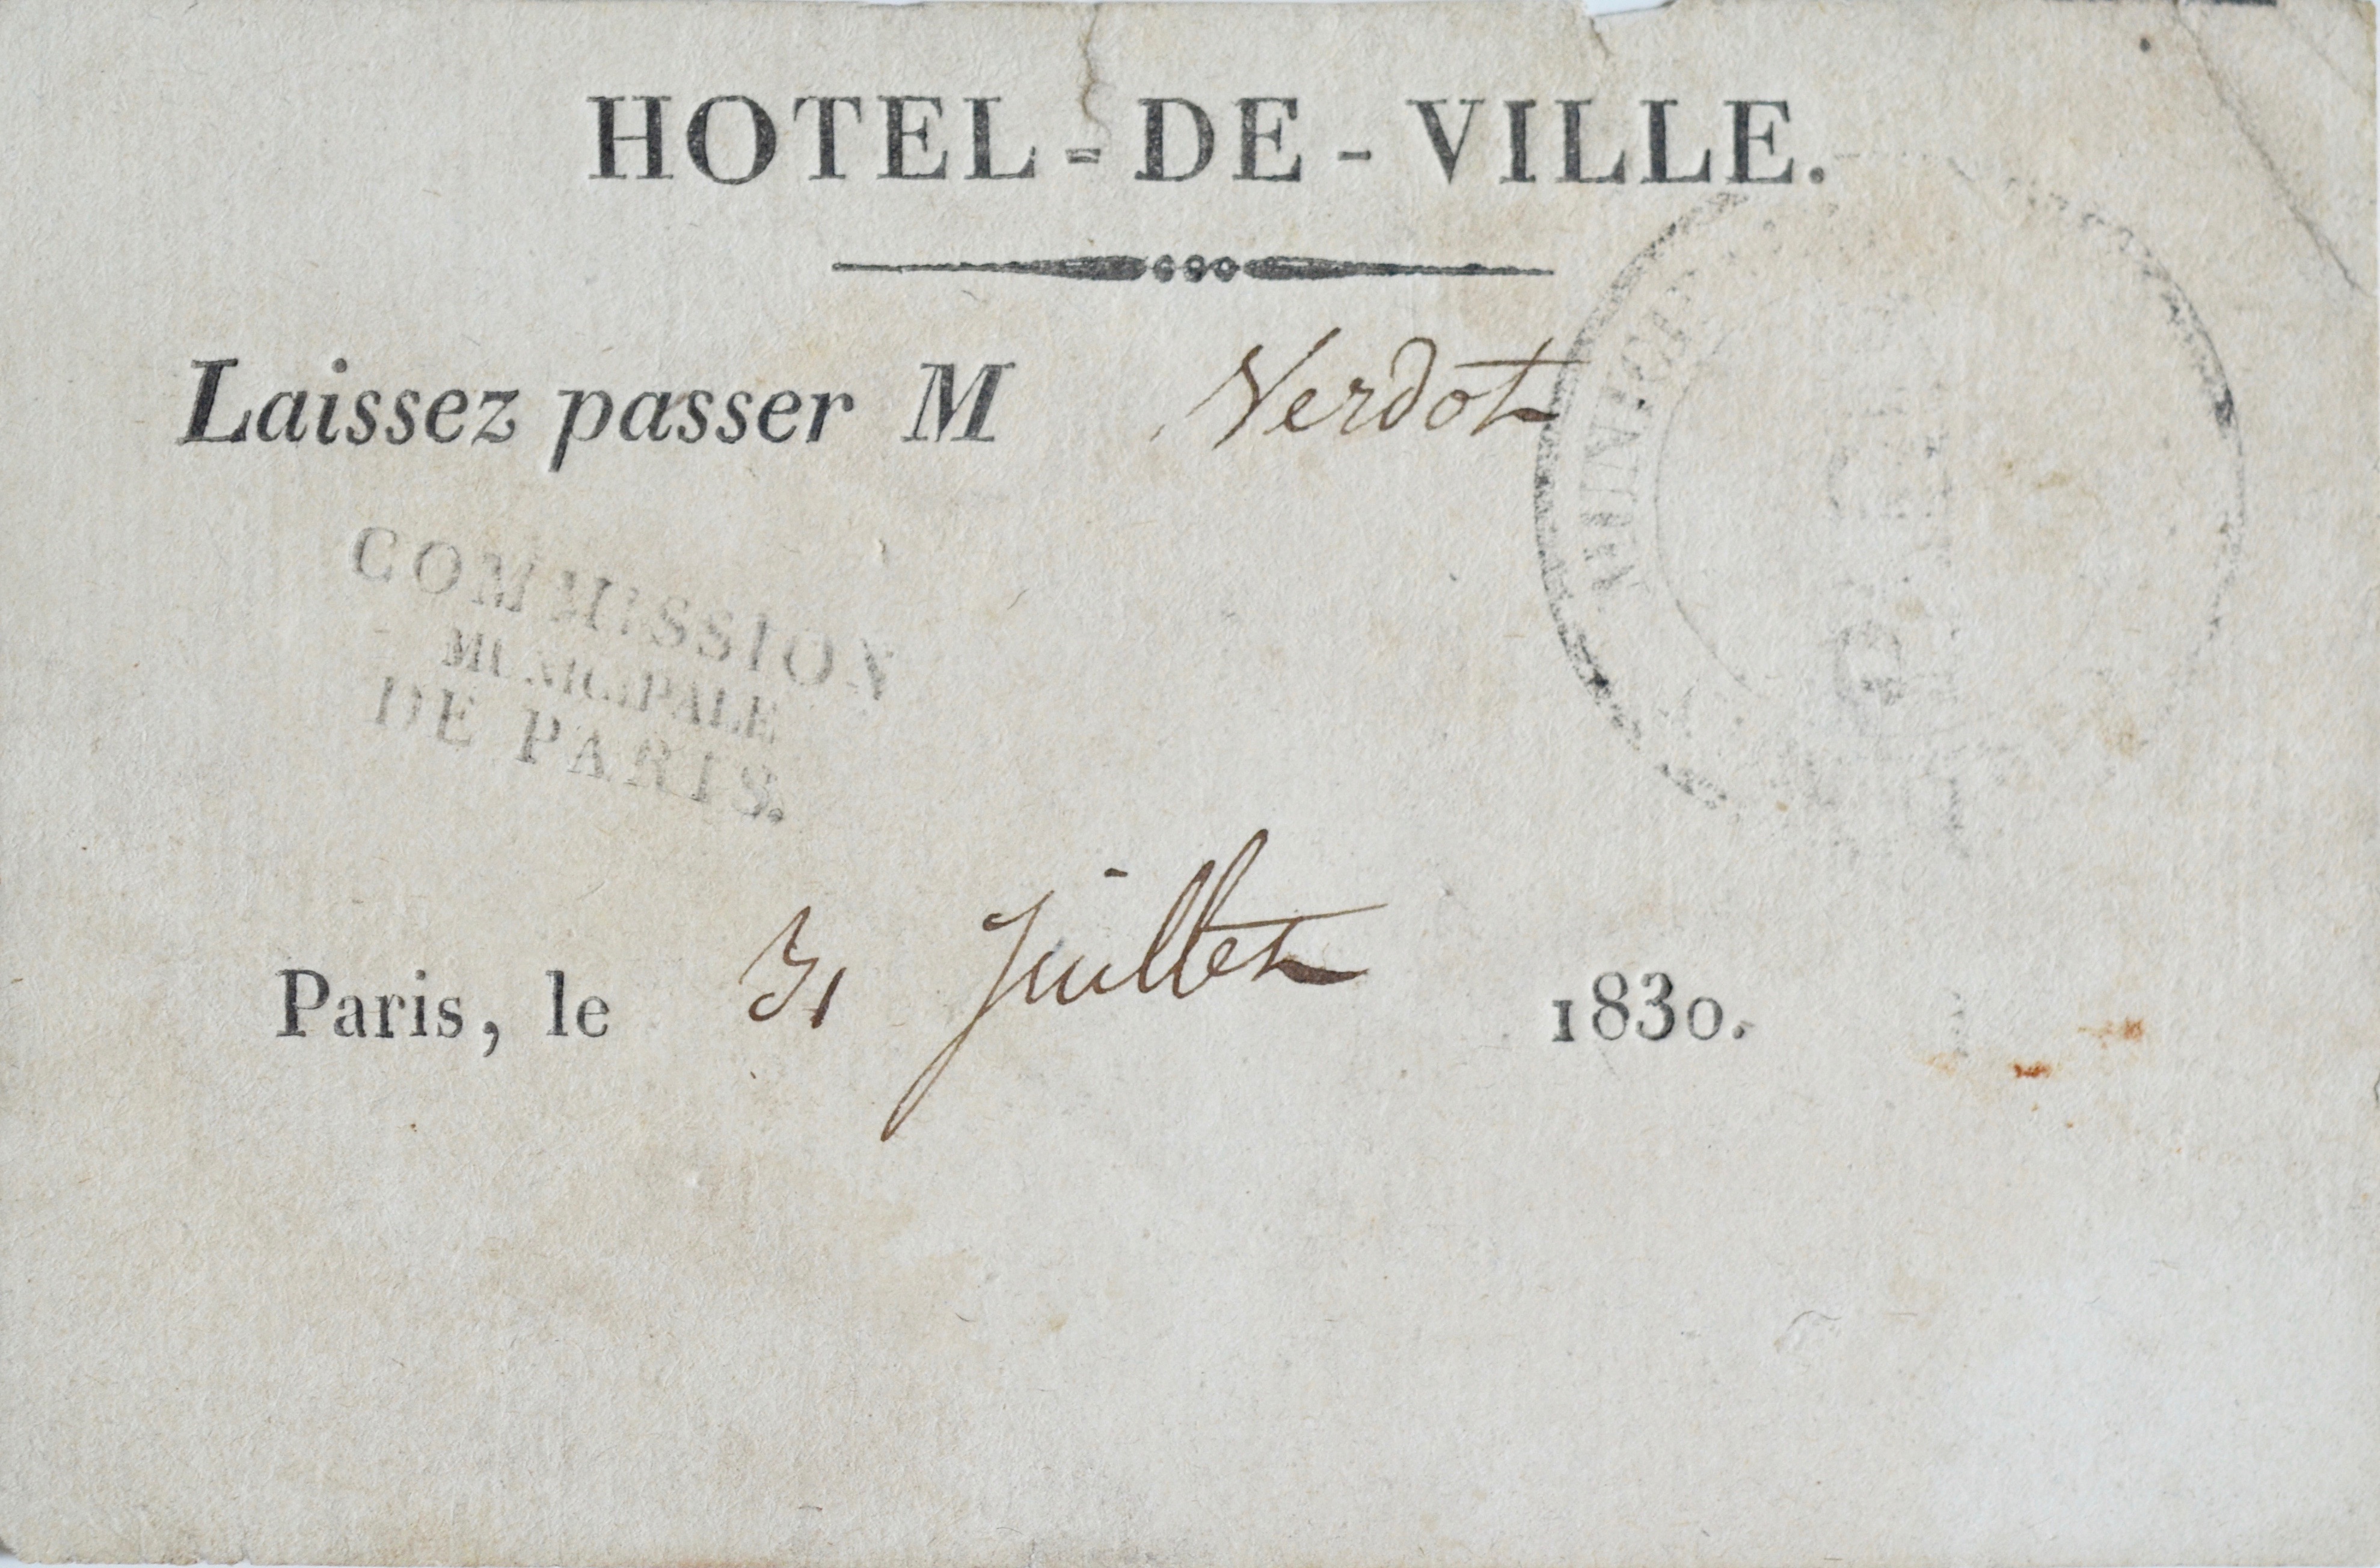 HOTEL-DE-VILLE.
Laissez passer M Verdot
COMMISSION
MUNICIPALE
DE PARIS.
Paris, le 31 Juillet 1830.